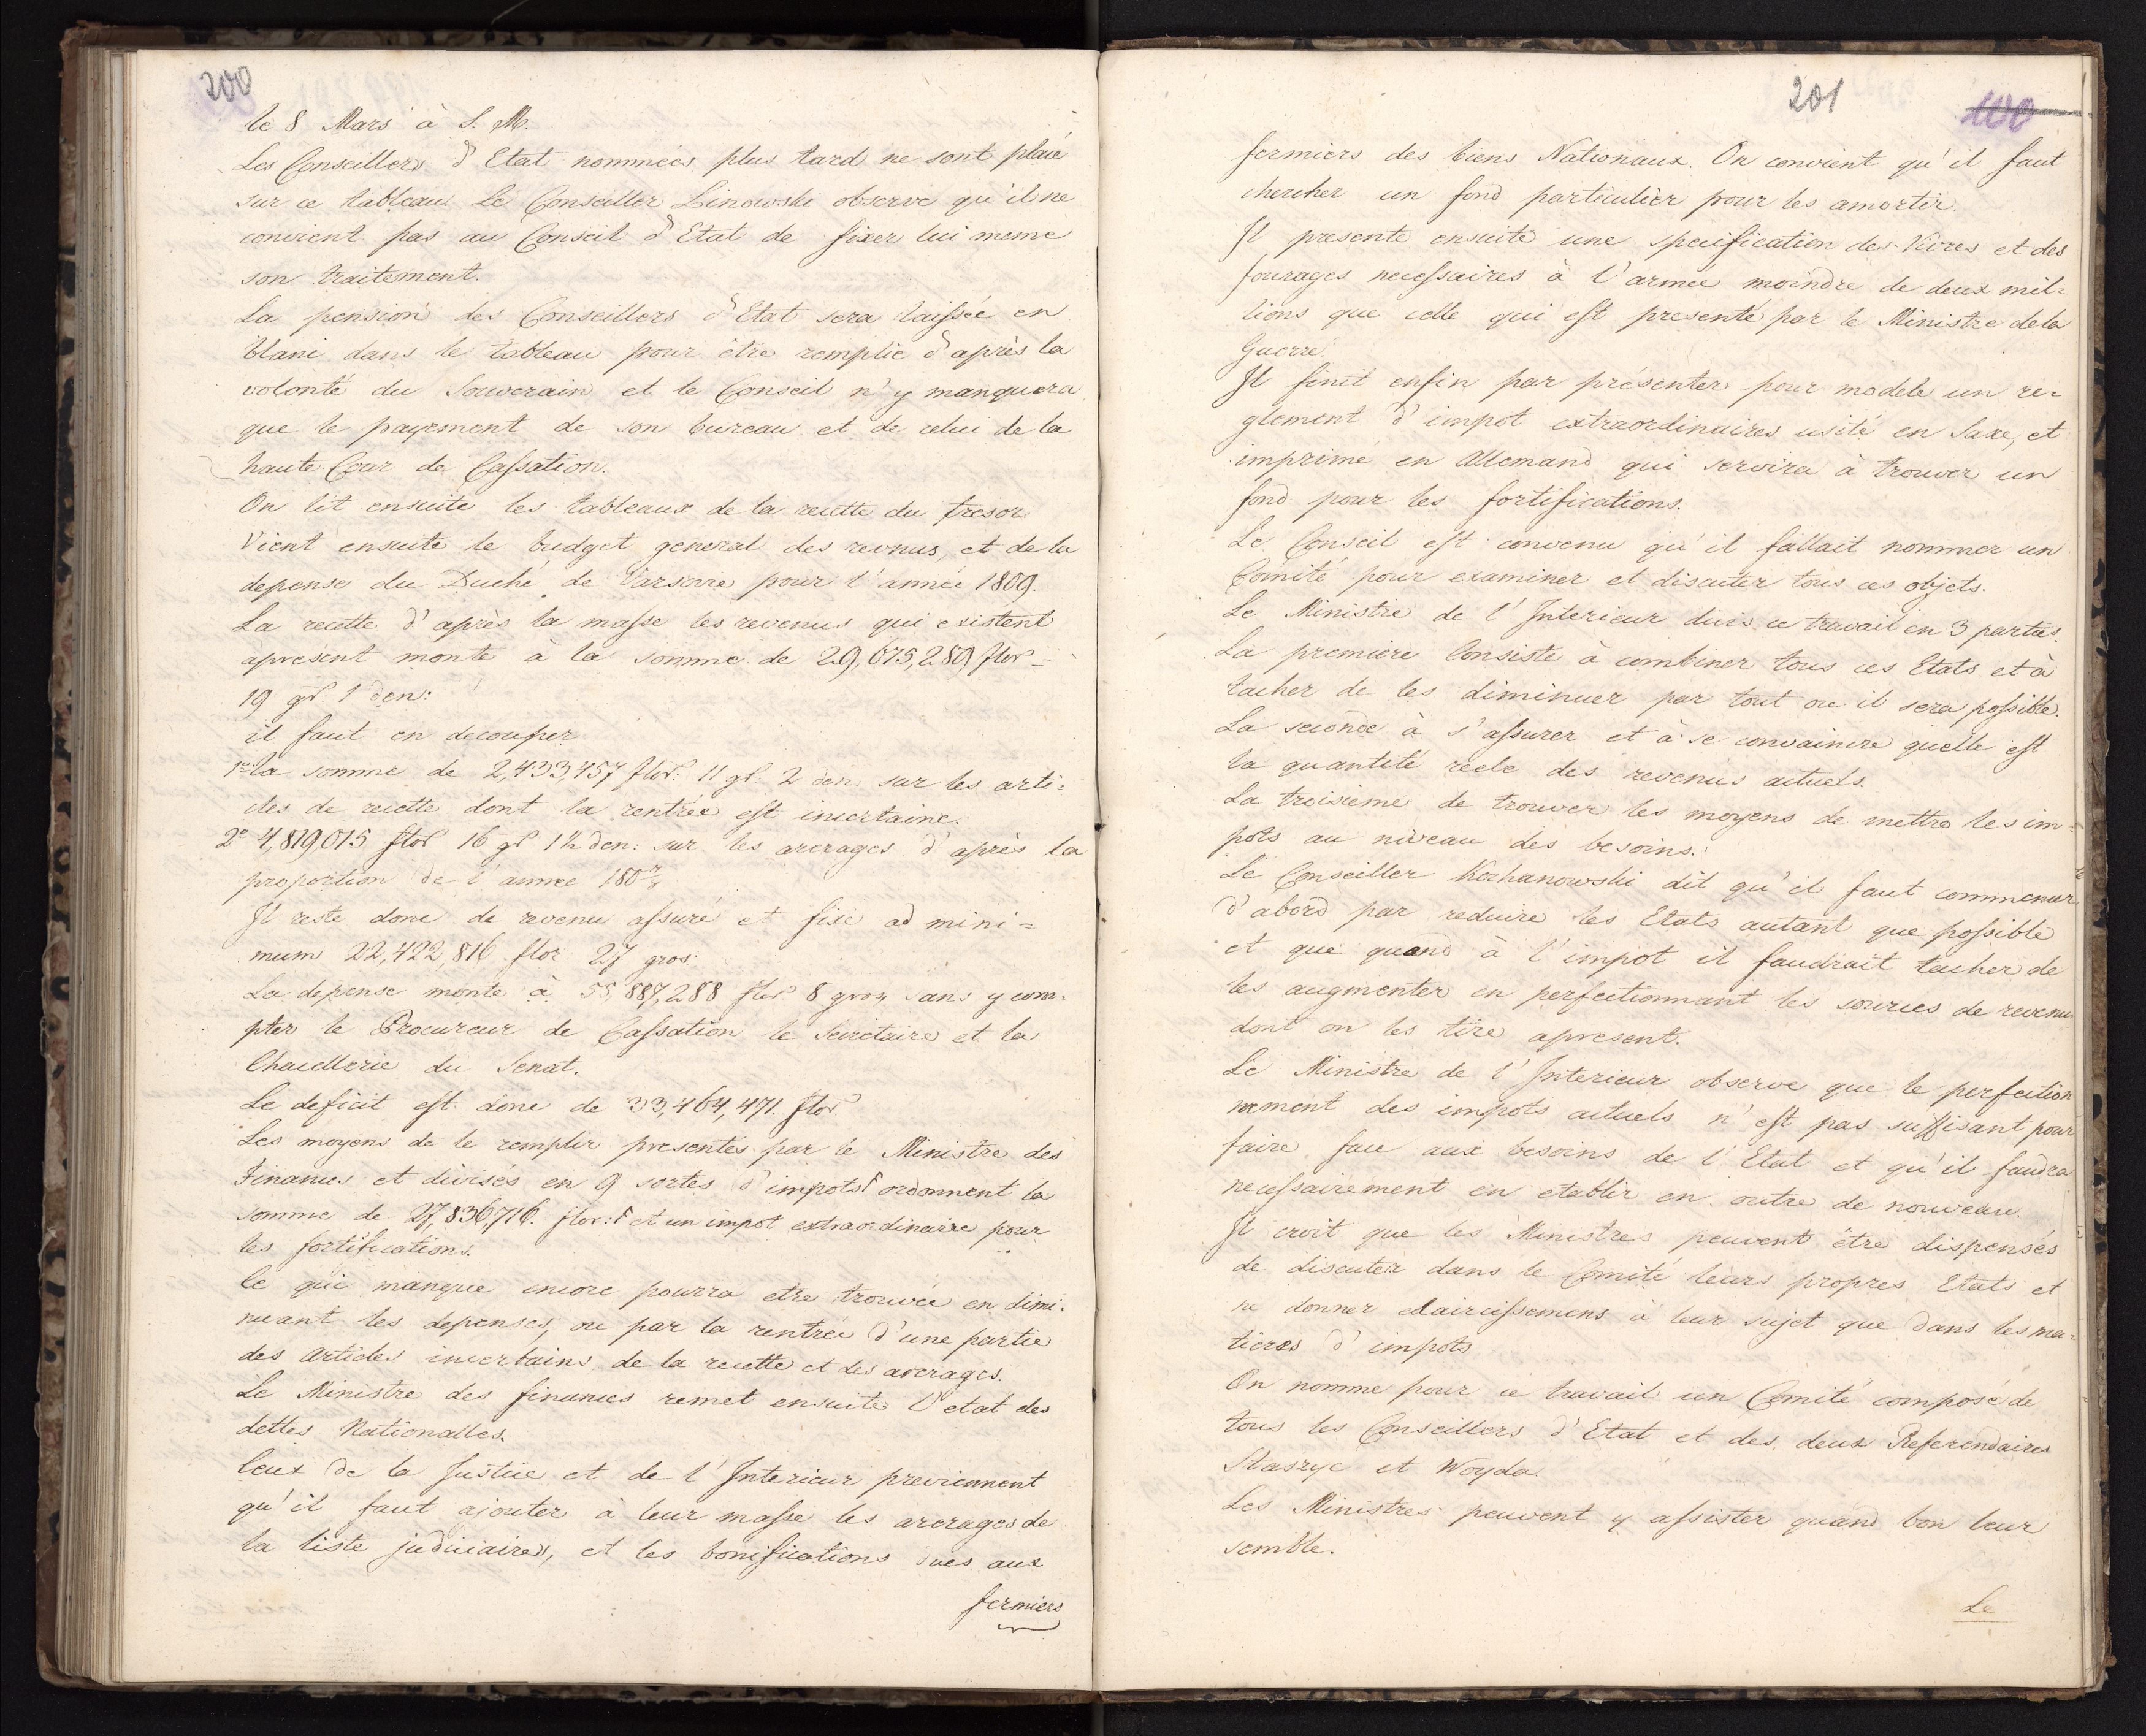 200
le 8 Mars à S. M.
Les Conseillers d'Etat nommées plus tard ne sont placé
sur ce tableau Le Conseiller Linowski observe qu'il ne
convient pas au Conseil d'Etat de fixer lui meme
son traitement.
La pension des Conseillers d'Etat sera laissée en
blanc dans le tableau pour être remplie d'après la
volonté du Souverain et le Conseil n'y manquera
que le payement de son bureau et de celui de la
haute Cour de Cassation.
On lit ensuite les tableaux de la recette du tresor.
Vient ensuite le budget general des revnus, et de la
depense du Duché de Varsovie pour l'année 1809.
La recette d'après la masse les revenus qui existent
apresent monte à la somme de 29,675,289 flor =
19 gr: 1 den:
il faut en decouper
1º la somme de 2,433,457 flor: 11 gr: 2 den: sur les arti=
cles de recette dont la rentrée est incertaine.
2º 4,819,015 flor 16 gr 1½ den: sur les arerages d'après la
proportion de l'année 180 7/8
Il reste donc de revenu assuré et fixe ad mini=
mum 22,422,816 flor 27 gros:
La depense monte à 55,887,288 flor 8 gros sans y com=
pter le Procureur de Cassation le Secretaire et la
Chancellerie du Senat.
Le deficit est donc de 33,464,471. flor.
Les moyens de le remplir presentés par le Ministre des
Finances et divisés en 9 sortes d'impots ordonnent la
somme de 27,836,716. flor: et un impot extraordinaire pour
les fortifications.
Ce qui manque encore pourra etre trouvée en dimi=
nuant les depenses, ou par la rentrée d'une partie
des articles incertains de la recette et des arerages.
Le Ministre des finances remet ensuite l'etat des
dettes Nationalles.
Ceux de la Justice et de l'Interieur previennent
qu'il faut ajouter à leur masse les arerages de
la liste judiciaires, et les bonifications dues aux
fermiers
201
100
fermiers des biens Nationaux. On convient qu'il faut
chercher un fond particulier pour les amortir.
Il presente ensuite une specification des Vivres et des
fourages necessaires à l'armée moindre de deux mil=
lions que celle qui est presenté par le Ministre de la
Guerre.
Il finit enfin par présenter pour modele un re=
glement d'impot extraordinaires usité en Saxe, et
imprimé en Allemand qui servira à trouver un
fond pour les fortifications.
Le Conseil est convenu qu'il fallait nommer un
Comité pour examiner et discuter tous ces objets.
Le Ministre de l'Interieur divis ce travail en 3 parties
La premiere Consiste à combiner tous ces Etats et à
tacher de les diminuer par tout ou il sera possible.
La seconde à s'assurer et à se convaincre quelle est
la quantité réele des revenus actuels.
La troisieme de trouver les moyens de mettre les im=
pots au niveau des besoins.
Le Conseiller Kochanowski dit qu'il faut commencer
d'abord par reduire les Etats autant que possible
et que quand à l'impot il faudrait tacher de
les augmenter en perfectionnant les sources de revenu
dont on les tire apresent.
Le Ministre de l'Interieur observe que le perfection
nement des impots actuels n'est pas suffisant pour
faire face aux besoins de l'Etat et qu'il faudra
necessairement en etablir en outre de nouveau.
Il croit que les Ministres peuvent être dispensés
de discuter dans le Comité leurs propres Etats et
ne donner eclaircissemens à leur sujet que dans les ma=
tieres d'impots
On nomme pour ce travail un Comité composé de
tous les Conseillers d'Etat et des deux Referendaires
Staszyc et Woyda.
Les Ministres peuvent y assister quand bon leur
semble.
Le